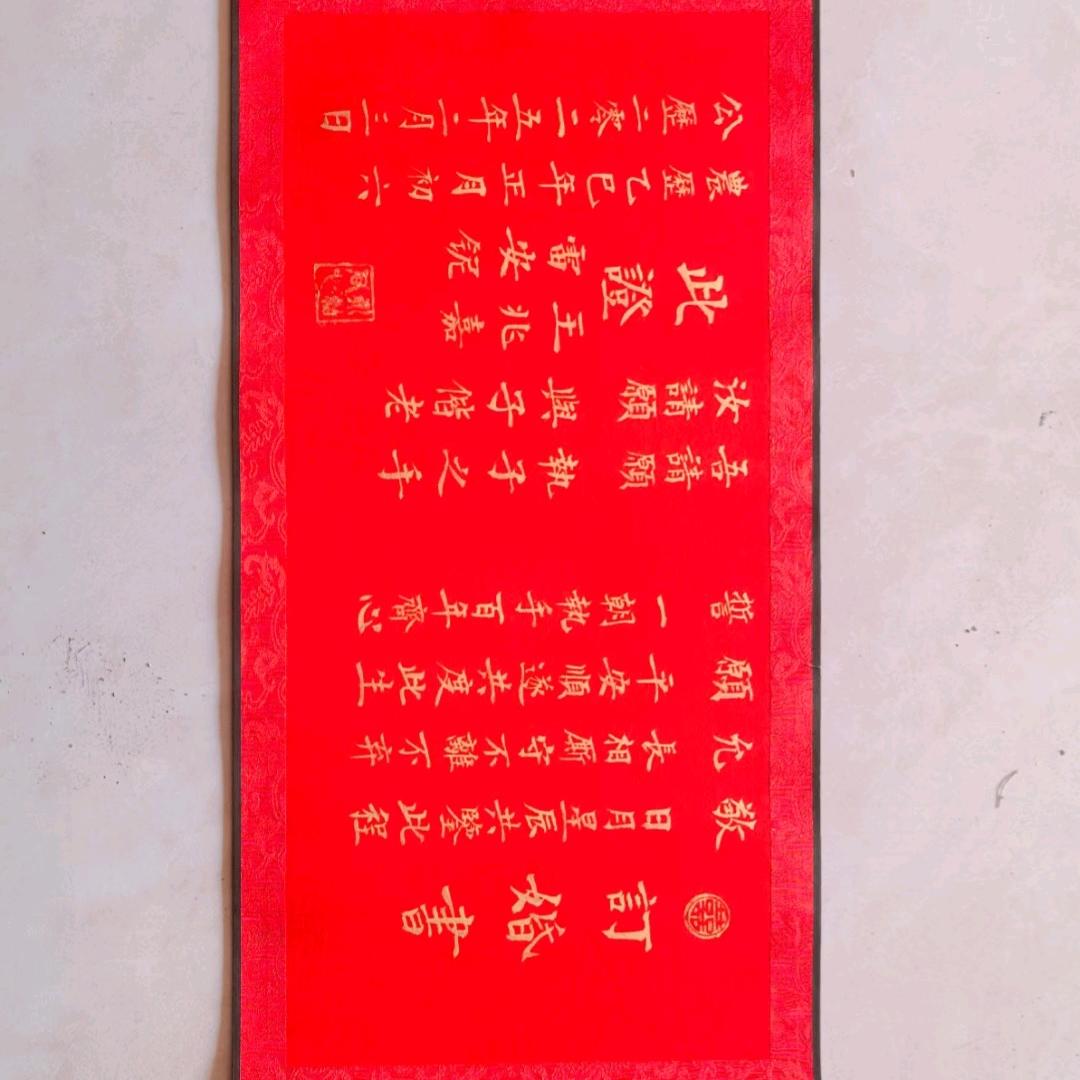 訂婚書
敬 日月星辰共鑒此程
允 長相厮守不離不弃
願 平安順遂共度此生
誓 一朝執手百年齊心
吾請願 執子之手
汝請願 與子偕老
此證
王兆嘉
雷安鋭
農歷乙巳年正月初六
公歷二零二五年二月三日